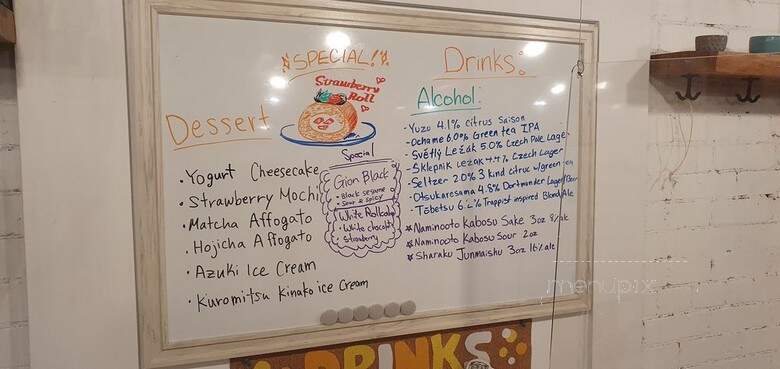 SPECIAL!
Strawberry
Roll
Dessert
• Yogurt Cheesecake
• Strawberry Mochi
• Matcha Affogato
• Hojicha Affogato
• Azuki Ice Cream
• Kuromitsu Kinako ice Cream
Special
Gion Black
• Black sesame
• Sour & spicy
White Rollcake
• White chocolat
• Strawberry
Drinks:
Alcohol:
• Yuzu 4.1% Citrus Saison
• Ochame 6.0% Green tea IPA
• Světlý Ležák 5.0% Czech Pale Lager
• Sklepnik Ležák 4.4% Czech Lager
• Seltzer 2.0% 3 kind citrus w/green tea
• Otsukaresama 4.8% Dortmunder Lager/Beer
• Tobetsu 6.2% Trappist inspired Blond Ale
* Naminooto Kabosu Sake 3oz 8% alc
* Naminooto Kabosu Sour 2oz
* Sharaku Junmaishu 3oz 16% alc
menupix
DRINKS